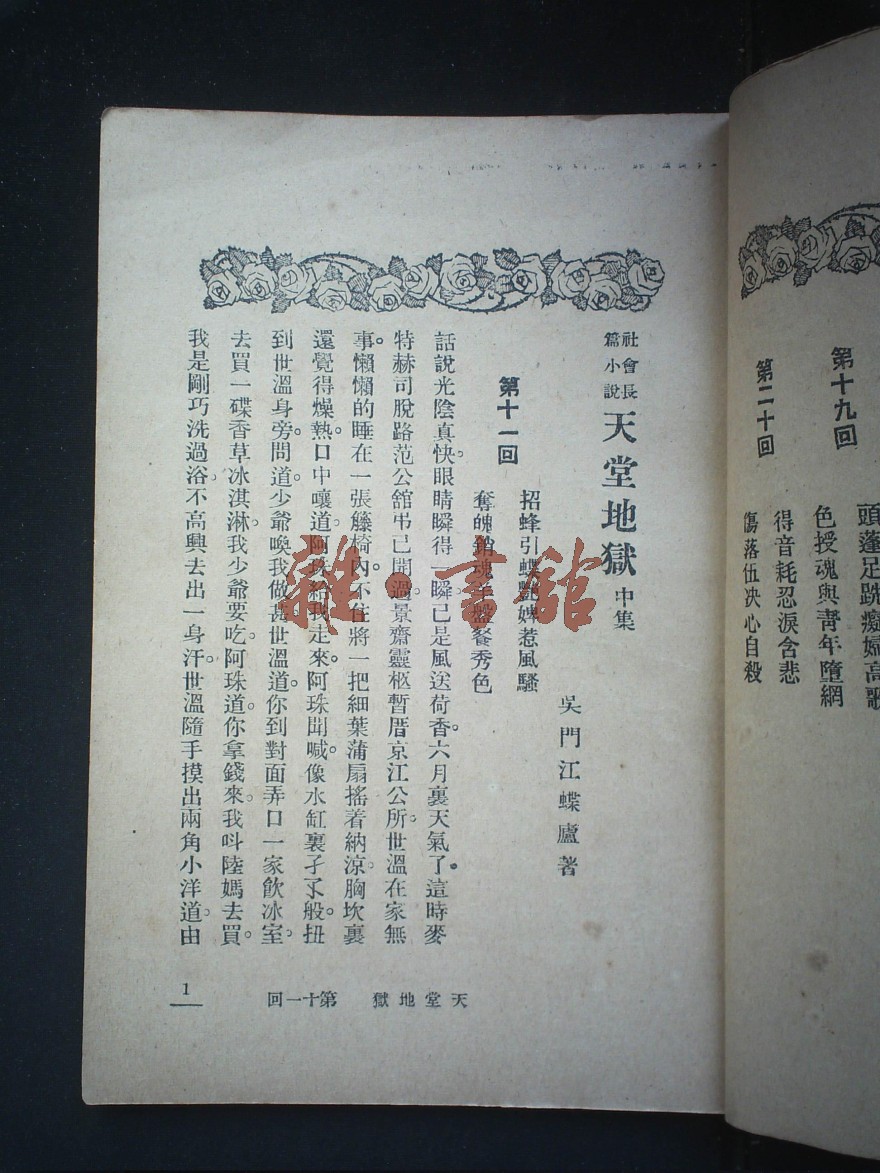 第十九回
頭蓬足跣癡婦高歌
色授魂與青年墮網
第二十回
得音耗忍淚含悲
傷落伍決心自殺
社會長篇小說
天堂地獄 中集
吳門江蝶廬著
第十一回
招蜂引蝶艷婢惹風騷
奪魄銷魂洋盤餐秀色
話說光陰真快。眼睛瞬得一瞬。已是風送荷香。六月裏天氣了。這時麥
特赫司脫路范公舘弔已開過。景齋靈柩暫厝京江公所。世溫在家無
事。懶懶的睡在一張籐椅內。不住將一把細葉蒲扇搖着納涼。胸坎裏
還覺得燥熱。口中嚷道。阿珠給我走來。阿珠聞喊。像水缸裏孑孓般。扭
到世溫身旁。問道。少爺喚我做甚。世溫道。你到對面弄口一家飲冰室。
去買一碟香草冰淇淋。我少爺要吃。阿珠道。你拿錢來。我呌陸媽去買。
我是剛巧洗過浴。不高興去出一身汗。世溫隨手摸出兩角小洋道。由
天堂地獄 第十一回
1
雜·書舘